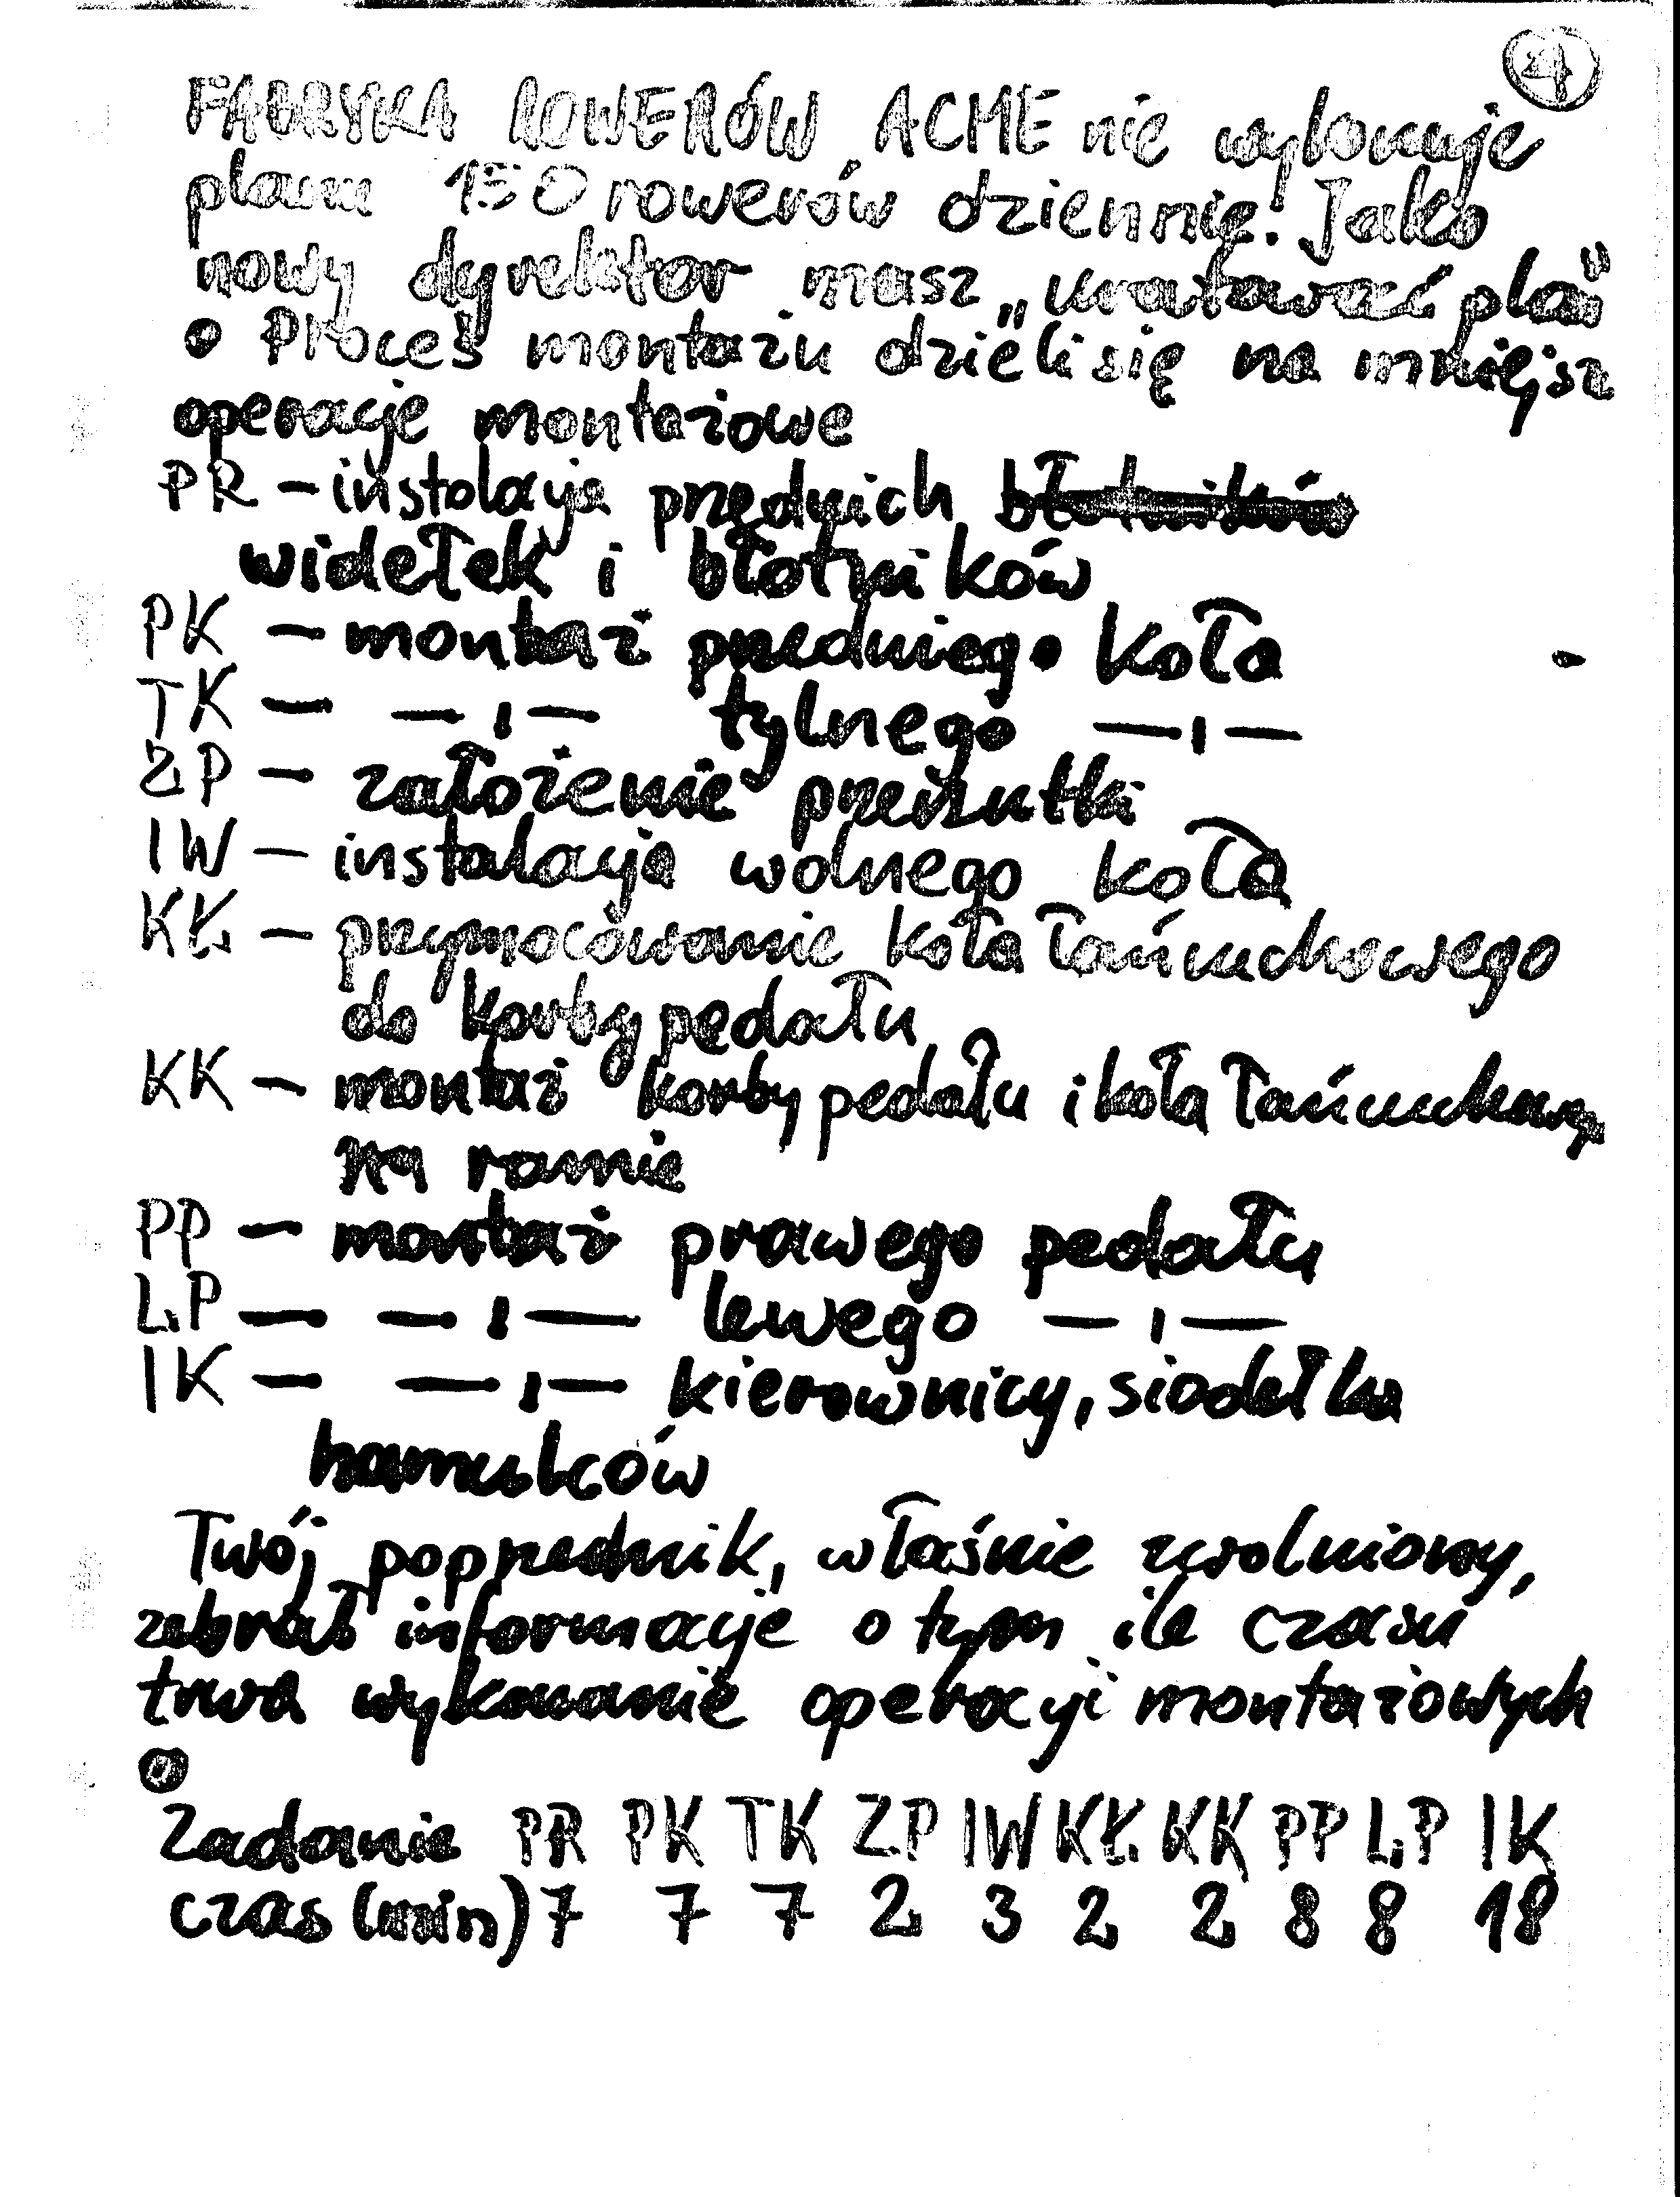 4
FABRYKA ROWERÓW ACME nie wykonuje
planu 150 rowerów dziennie. Jako
nowy dyrektor masz „uratować plan"
• Proces montażu dzieli się na mniejsz
operacje montażowe
PR – instalacja przednich błotników
widełek i błotników
PK – montaż przedniego koła
TK – –ı– tylnego –ı–
ZP – założenie przerzutki
IW – instalacja wolnego koła
KŁ – przymocowanie koła łańcuchowego
do korby pedału
KK – montaż korby pedału i koła łańcuchoweg
na ramie
PP – montaż prawego pedału
LP – –ı– lewego –ı–
IK – –ı– kierownicy, siodełka
hamulców
Twój poprzednik, właśnie zwolniony,
zebrał informacje o tym ile czasu
trwa wykonanie operacyi montażowych
Zadanie PR PK TK ZP IW KŁ KK PP LP IK
czas (min) 7 7 7 2 3 2 2 8 8 18